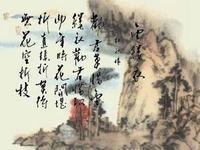 金縷衣
杜秋娘
勸君莫惜金
縷衣勸君惜取
少年時花開堪
折直須折莫待
無花空折枝